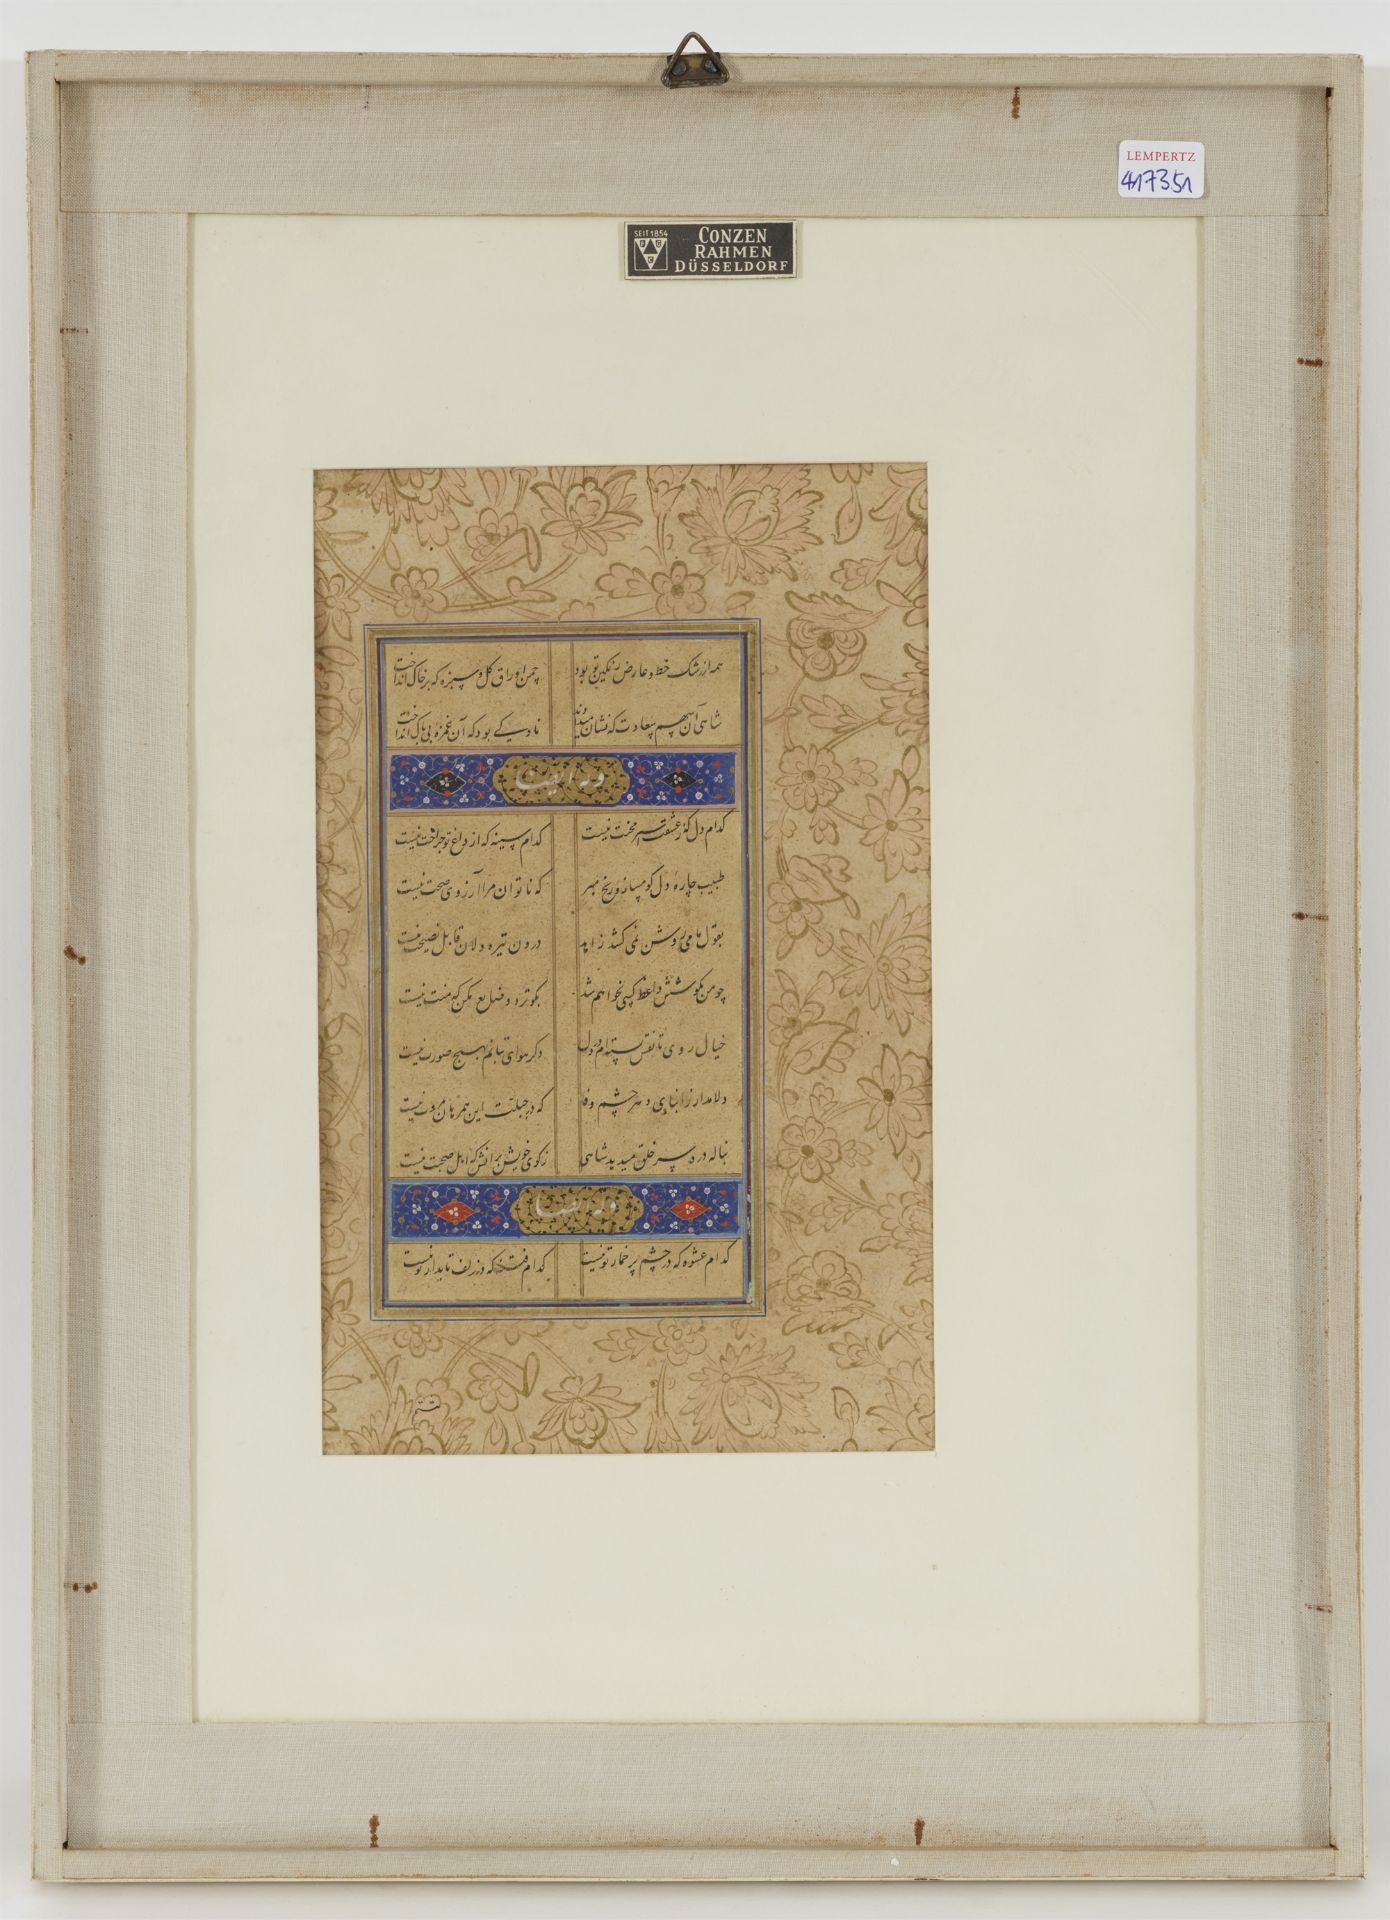 LEMPERTZ
417351
SEIT 1854
CONZEN
RAHMEN
DÜSSELDORF
همه از رشک خط و عارض رنگین تو بود چمن اوراق گل و سبزه که بر خاک انداخت
شاهی آن سهم سعادت که نشان میدادند که آن غمزه بی باک انداخت
وله ایضا
کدام دل که ز عشقت اسیر محنت نیست کدام سینه که از داغ تو جراحت نیست
طبیب چاره دل گو مساز و رنج مبر که ناتوان مرا آرزوی صحت نیست
بقول ما می روشن نمی کشد زاهد درون تیره دلان قابل نصیحت نیست
چو من بکوشش واعظ کسی نخواهم شد بگو تردد ضایع مکن که منت نیست
خیال روی تو تا نقش بسته ام در دل دگر هوای بتانم بهیچ صورت نیست
دلا مدار ز ابنای دهر چشم وفا که در جبلت این همرهان مروت نیست
بناله درد سر خلق میدهد شاهی ز کوی خویش برانش که اهل صحبت نیست
وله ایضا
کدام عشوه که در چشم پر خمار تو نیست کدام فتنه که در زلف تابدار تو نیست